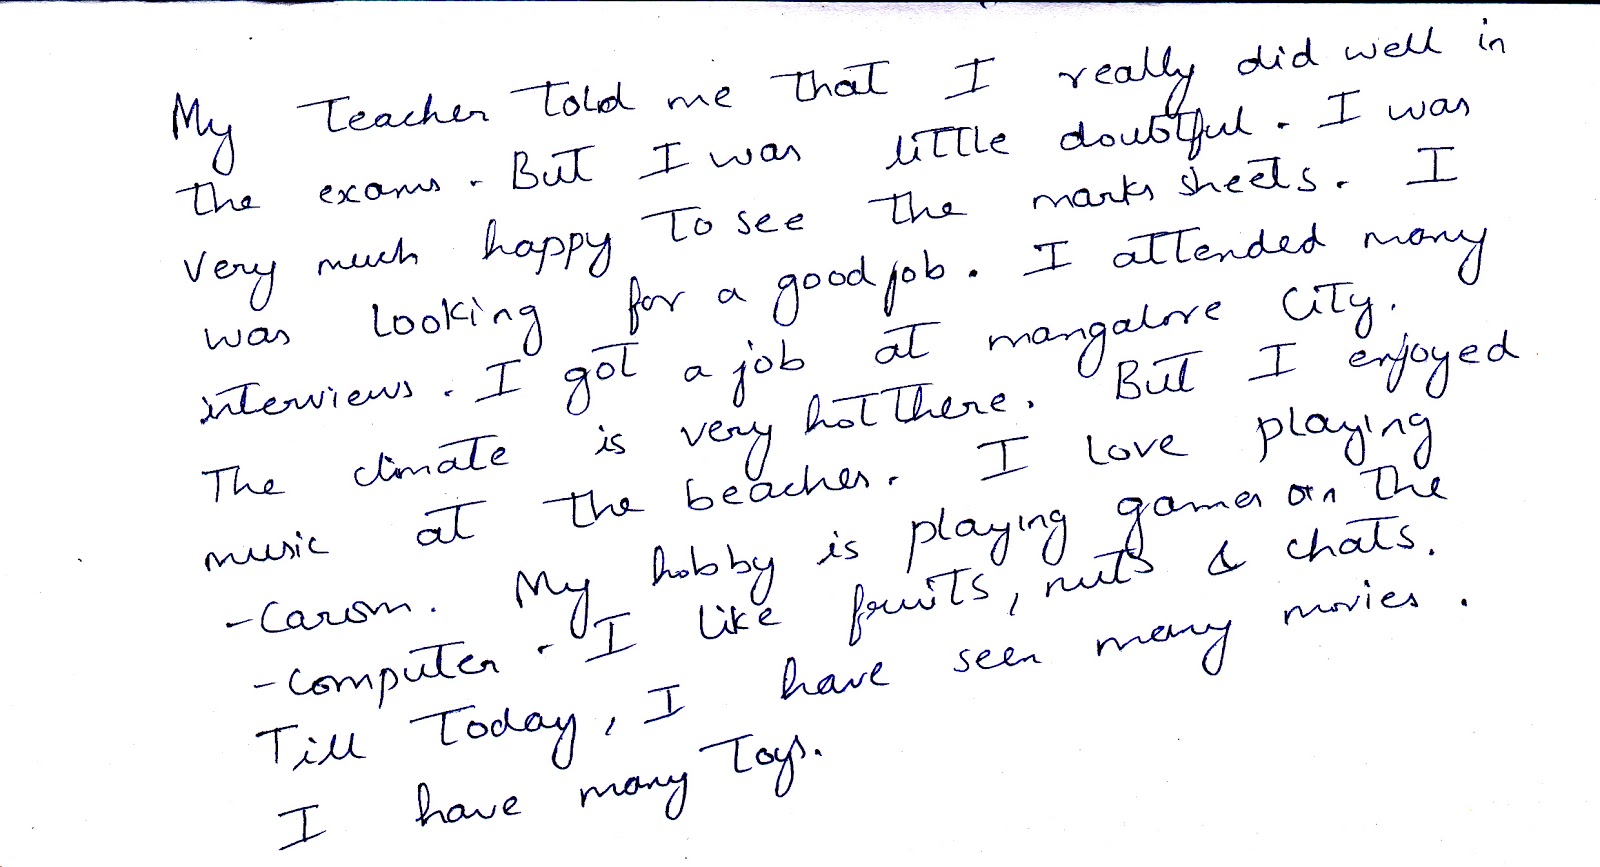 My Teacher told me that I really did well in
the exams. But I was little doubtful. I was
very much happy to see the marks sheets. I
was looking for a good job. I attended many
interviews. I got a job at mangalore city.
The climate is very hot there. But I enjoyed
music at the beaches. I love playing
-Carom. My hobby is playing games on the
-computer. I like fruits, nuts & chats.
Till Today, I have seen many movies.
I have many Toys.